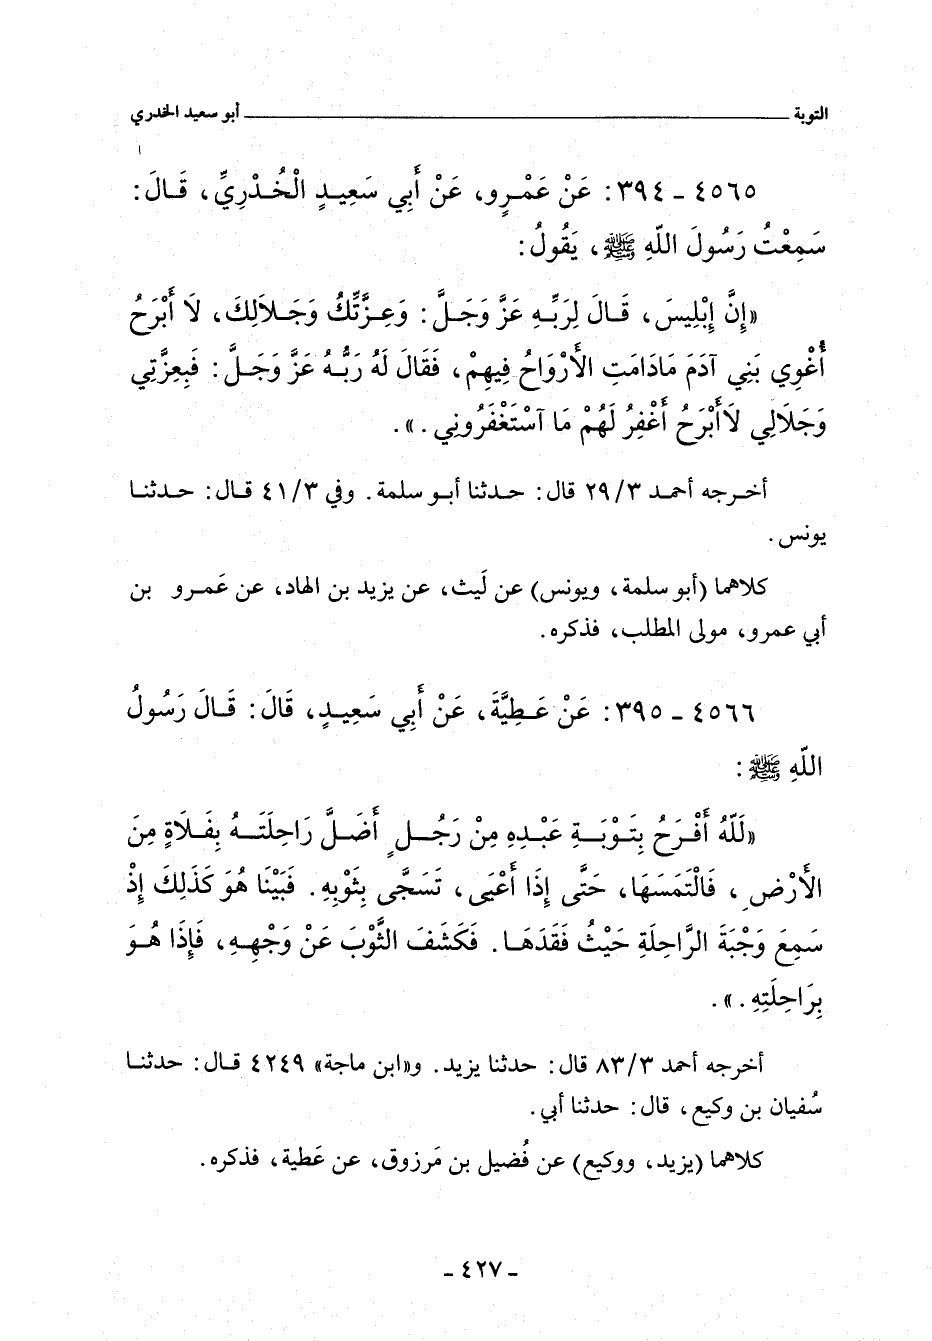 التوبة ــــــــــــــــــــ أبو سعيد الخدري
٤٥٦٥ ـ ٣٩٤: عَنْ عَمْـرٍو، عَنْ أَبِي سَعِيـدٍ الْخُـدْرِيِّ، قَـالَ:
سَمِعْتُ رَسُولَ اللّهِ ﷺ، يَقُولُ:
«إِنَّ إِبْلِيسَ، قَـالَ لِرَبِّـهِ عَزَّ وَجَـلَّ: وَعِـزَّتِكَ وَجَـلَالِكَ، لَا أَبْرَحُ
أُغْوِي بَنِي آدَمَ مَادَامَتِ الأَرْوَاحُ فِيهِمْ، فَقَالَ لَهُ رَبُّـهُ عَزَّ وَجَلَّ: فَبِعِزَّتِي
وَجَلَالِي لَاأَبْرَحُ أَغْفِرُ لَهُمْ مَا آسْتَغْفَرُونِي.».
أخـرجه أحمـد ٢٩/٣ قال: حـدثنا أبـو سلمة. وفي ٤١/٣ قـال: حـدثنـا
يونس.
كلاهما (أبو سلمة، ويونس) عن لَيث، عن يزيد بن الهاد، عن عَمـرو بن
أبي عمرو، مولى المطلب، فذكره.
٤٥٦٦ ـ ٣٩٥: عَنْ عَـطِيَّةَ، عَنْ أَبِي سَعِيـدٍ، قَالَ: قَـالَ رَسُولُ
اللّهِ ﷺ:
«لَلّهُ أَفْـرَحُ بِتَـوْبَـةِ عَبْـدِهِ مِنْ رَجُـلٍ أَضَـلَّ رَاحِلَتَـهُ بِفَـلَاةٍ مِنَ
الأَرْضِ، فَالْتَمَسَهَا، حَتَّى إِذَا أَعْيَى، تَسَجَّى بِثَوْبِهِ. فَبَيْنَا هُوَ كَذَلِكَ إِذْ
سَمِعَ وَجْبَةَ الرَّاحِلَةِ حَيْثُ فَقَدَهَـا. فَكَشَفَ الثَّوْبَ عَنْ وَجْهِـهِ، فَإِذَا هُـوَ
بِرَاحِلَتِهِ.».
أخرجه أحمد ٨٣/٣ قال: حدثنا يزيد. و«ابن ماجة» ٤٢٤٩ قـال: حدثنـا
سُفيان بن وكيع، قال: حدثنا أبي.
كلاهما (يزيد، ووكيع) عن فُضيل بن مَرزوق، عن عَطية، فذكره.
ـ ٤٢٧ ـ